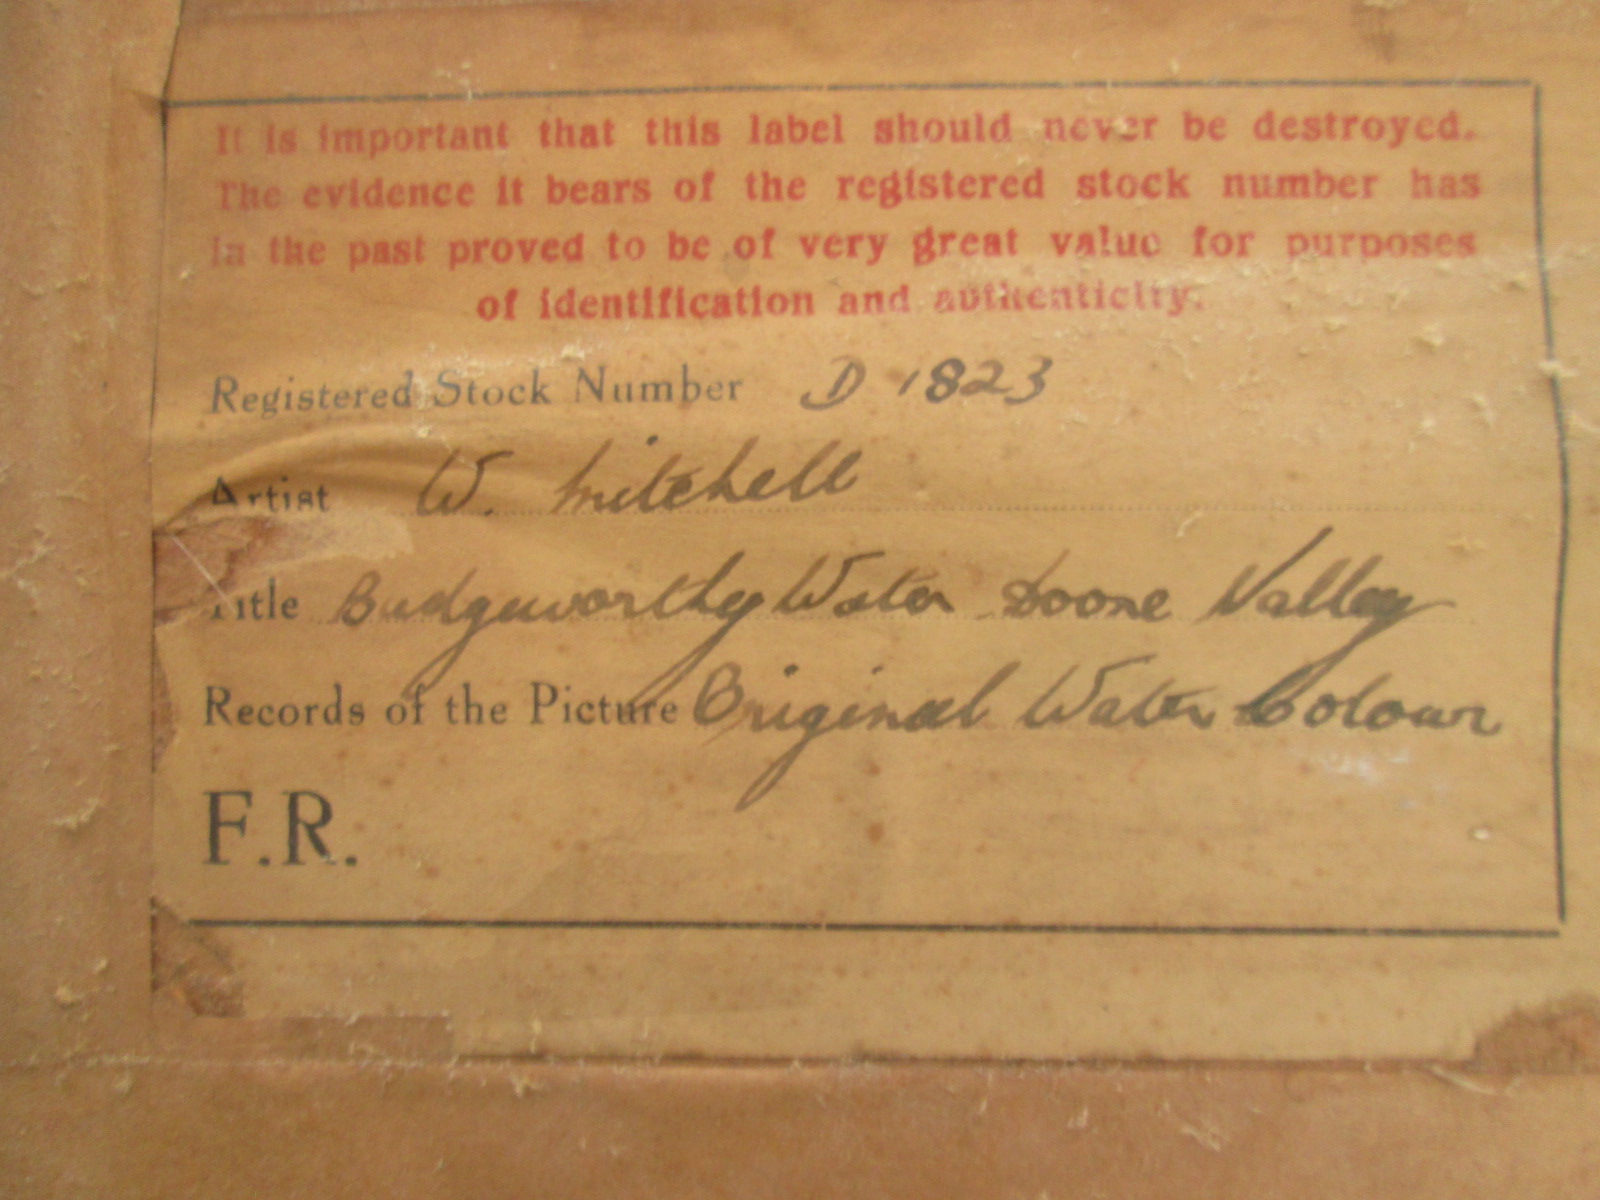 It is important that this label should never be destroyed.
The evidence it bears of the registered stock number has
in the past proved to be of very great value for purposes
of identification and authenticity.
Registered Stock Number D 1823
Artist W. Mitchell
Title Badgeworthy Water Doone Valley
Records of the Picture Original Water Colour
F.R.